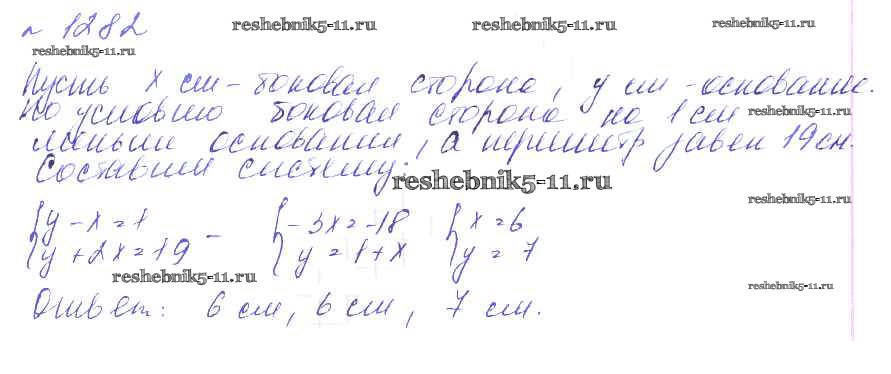 № 1282
reshebnik5-11.ru reshebnik5-11.ru reshebnik5-11.ru
reshebnik5-11.ru
Пусть x см - боковая сторона, y см - основание.
По условию боковая сторона на 1 см reshebnik5-11.ru
меньше основания, а периметр равен 19 см.
Составим систему:
reshebnik5-11.ru
reshebnik5-11.ru
{ y - x = 1 - { -3x = -18 { x = 6
{ y + 2x = 19 { y = 1 + x { y = 7
reshebnik5-11.ru reshebnik5-11.ru reshebnik5-11.ru
Ответ: 6 см, 6 см, 7 см.
reshebnik5-11.ru